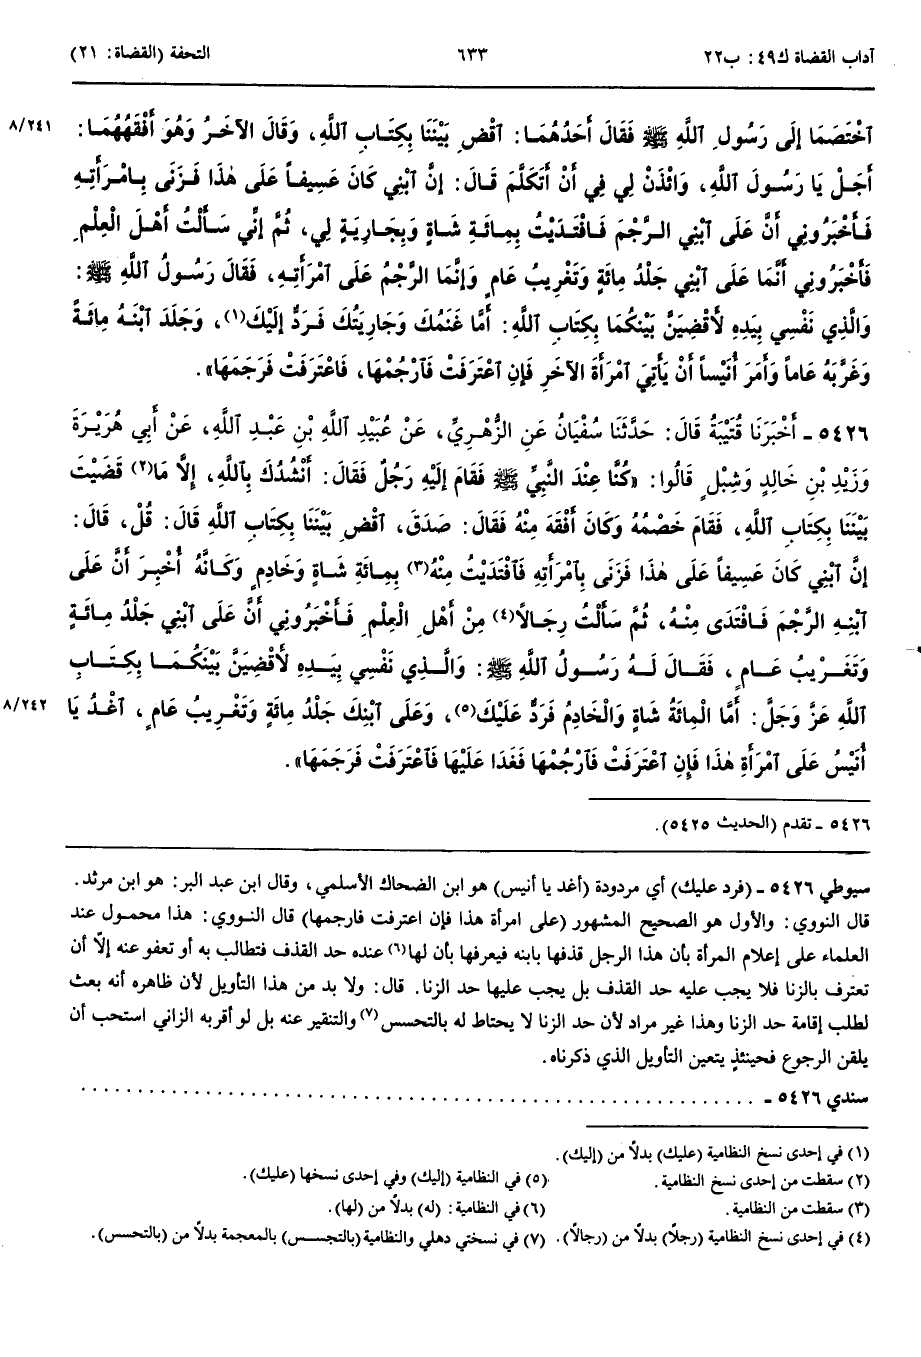 آداب القضاة ك٤٩: ب٢٢ ٦٣٣ التحفة (القضاة: ٢١)
ٱخْتَصَمَا إِلَى رَسُولِ ٱللَّهِ ﷺ فَقَالَ أَحَدُهُمَا: ٱقْضِ بَيْنَنَا بِكِتَابِ ٱللَّهِ، وَقَالَ الآخَرُ وَهُوَ أَفْقَهُهُمَا: ٨/٢٤١
أَجَلْ يَا رَسُولَ ٱللَّهِ، وَائْذَنْ لِي فِي أَنْ أَتَكَلَّمَ قَالَ: إِنَّ ٱبْنِي كَانَ عَسِيفاً عَلَى هٰذَا فَزَنَى بِامْرَأَتِهِ
فَأَخْبَرُونِي أَنَّ عَلَى ٱبْنِي الرَّجْمَ فَافْتَدَيْتُ بِمِائَةِ شَاةٍ وَبِجَارِيَةٍ لِي، ثُمَّ إِنِّي سَأَلْتُ أَهْلَ الْعِلْمِ
فَأَخْبَرُونِي أَنَّمَا عَلَى ٱبْنِي جَلْدُ مِائَةٍ وَتَغْرِيبُ عَامٍ وَإِنَّمَا الرَّجْمُ عَلَى ٱمْرَأَتِهِ، فَقَالَ رَسُولُ ٱللَّهِ ﷺ:
وَالَّذِي نَفْسِي بِيَدِهِ لأَقْضِيَنَّ بَيْنَكُمَا بِكِتَابِ ٱللَّهِ: أَمَّا غَنَمُكَ وَجَارِيَتُكَ فَرَدٌّ إِلَيْكَ(١)، وَجَلَدَ ٱبْنَهُ مِائَةً
وَغَرَّبَهُ عَاماً وَأَمَرَ أُنَيْساً أَنْ يَأْتِيَ ٱمْرَأَةَ الآخَرِ فَإِنِ ٱعْتَرَفَتْ فَٱرْجُمْهَا، فَاعْتَرَفَتْ فَرَجَمَهَا».
٥٤٢٦ ـ أَخْبَرَنَا قُتَيْبَةُ قَالَ: حَدَّثَنَا سُفْيَانُ عَنِ الزُّهْرِيِّ، عَنْ عُبَيْدِ اللَّهِ بْنِ عَبْدِ اللَّهِ، عَنْ أَبِي هُرَيْرَةَ
وَزَيْدِ بْنِ خَالِدٍ وَشِبْلٍ قَالُوا: «كُنَّا عِنْدَ النَّبِيِّ ﷺ فَقَامَ إِلَيْهِ رَجُلٌ فَقَالَ: أَنْشُدُكَ بِٱللَّهِ، إِلَّا مَا(٢) قَضَيْتَ
بَيْنَنَا بِكِتَابِ ٱللَّهِ، فَقَامَ خَصْمُهُ وَكَانَ أَفْقَهَ مِنْهُ فَقَالَ: صَدَقَ، ٱقْضِ بَيْنَنَا بِكِتَابِ ٱللَّهِ قَالَ: قُلْ، قَالَ:
إِنَّ ٱبْنِي كَانَ عَسِيفاً عَلَى هٰذَا فَزَنَى بِٱمْرَأَتِهِ فَٱفْتَدَيْتُ مِنْهُ(٣) بِمِائَةِ شَاةٍ وَخَادِمٍ وَكَأَنَّهُ أُخْبِرَ أَنَّ عَلَى
ٱبْنِهِ الرَّجْمَ فَافْتَدَى مِنْهُ، ثُمَّ سَأَلْتُ رِجَالاً(٤) مِنْ أَهْلِ الْعِلْمِ فَأَخْبَرُونِي أَنَّ عَلَى ٱبْنِي جَلْدُ مِائَةٍ
وَتَغْرِيبُ عَامٍ، فَقَالَ لَهُ رَسُولُ ٱللَّهِ ﷺ: وَالَّذِي نَفْسِي بِيَدِهِ لأَقْضِيَنَّ بَيْنَكُمَا بِكِتَابِ
ٱللَّهِ عَزَّ وَجَلَّ: أَمَّا الْمِائَةُ شَاةٍ وَالْخَادِمُ فَرَدٌّ عَلَيْكَ(٥)، وَعَلَى ٱبْنِكَ جَلْدُ مِائَةٍ وَتَغْرِيبُ عَامٍ، ٱغْدُ يَا ٨/٢٤٢
أُنَيْسُ عَلَى ٱمْرَأَةِ هٰذَا فَإِنِ ٱعْتَرَفَتْ فَٱرْجُمْهَا فَغَدَا عَلَيْهَا فَٱعْتَرَفَتْ فَرَجَمَهَا».
٥٤٢٦ ـ تقدم (الحديث ٥٤٢٥).
سيوطي ٥٤٢٦ ـ (فرد عليك) أي مردودة (أغد يا أنيس) هو ابن الضحاك الأسلمي، وقال ابن عبد البر: هو ابن مرثد.
قال النووي: والأول هو الصحيح المشهور (على امرأة هذا فإن اعترفت فارجمها) قال النووي: هذا محمول عند
العلماء على إعلام المرأة بأن هذا الرجل قذفها بابنه فيعرفها بأن لها(٦) عنده حد القذف فتطالب به أو تعفو عنه إلّا أن
تعترف بالزنا فلا يجب عليه حد القذف بل يجب عليها حد الزنا. قال: ولا بد من هذا التأويل لأن ظاهره أنه بعث
لطلب إقامة حد الزنا وهذا غير مراد لأن حد الزنا لا يحتاط له بالتحسس(٧) والتنقير عنه بل لو أقربه الزاني استحب أن
يلقن الرجوع فحينئذٍ يتعين التأويل الذي ذكرناه.
سندي ٥٤٢٦ ـ ................................................
(١) في إحدى نسخ النظامية (عليك) بدلاً من (إليك).
(٢) سقطت من إحدى نسخ النظامية. (٥) في النظامية (إليك) وفي إحدى نسخها (عليك).
(٣) سقطت من النظامية. (٦) في النظامية: (له) بدلاً من (لها).
(٤) في إحدى نسخ النظامية (رجلاً) بدلاً من (رجالاً). (٧) في نسختي دهلي والنظامية (بالتجسس) بالمعجمة بدلاً من (بالتحسس).